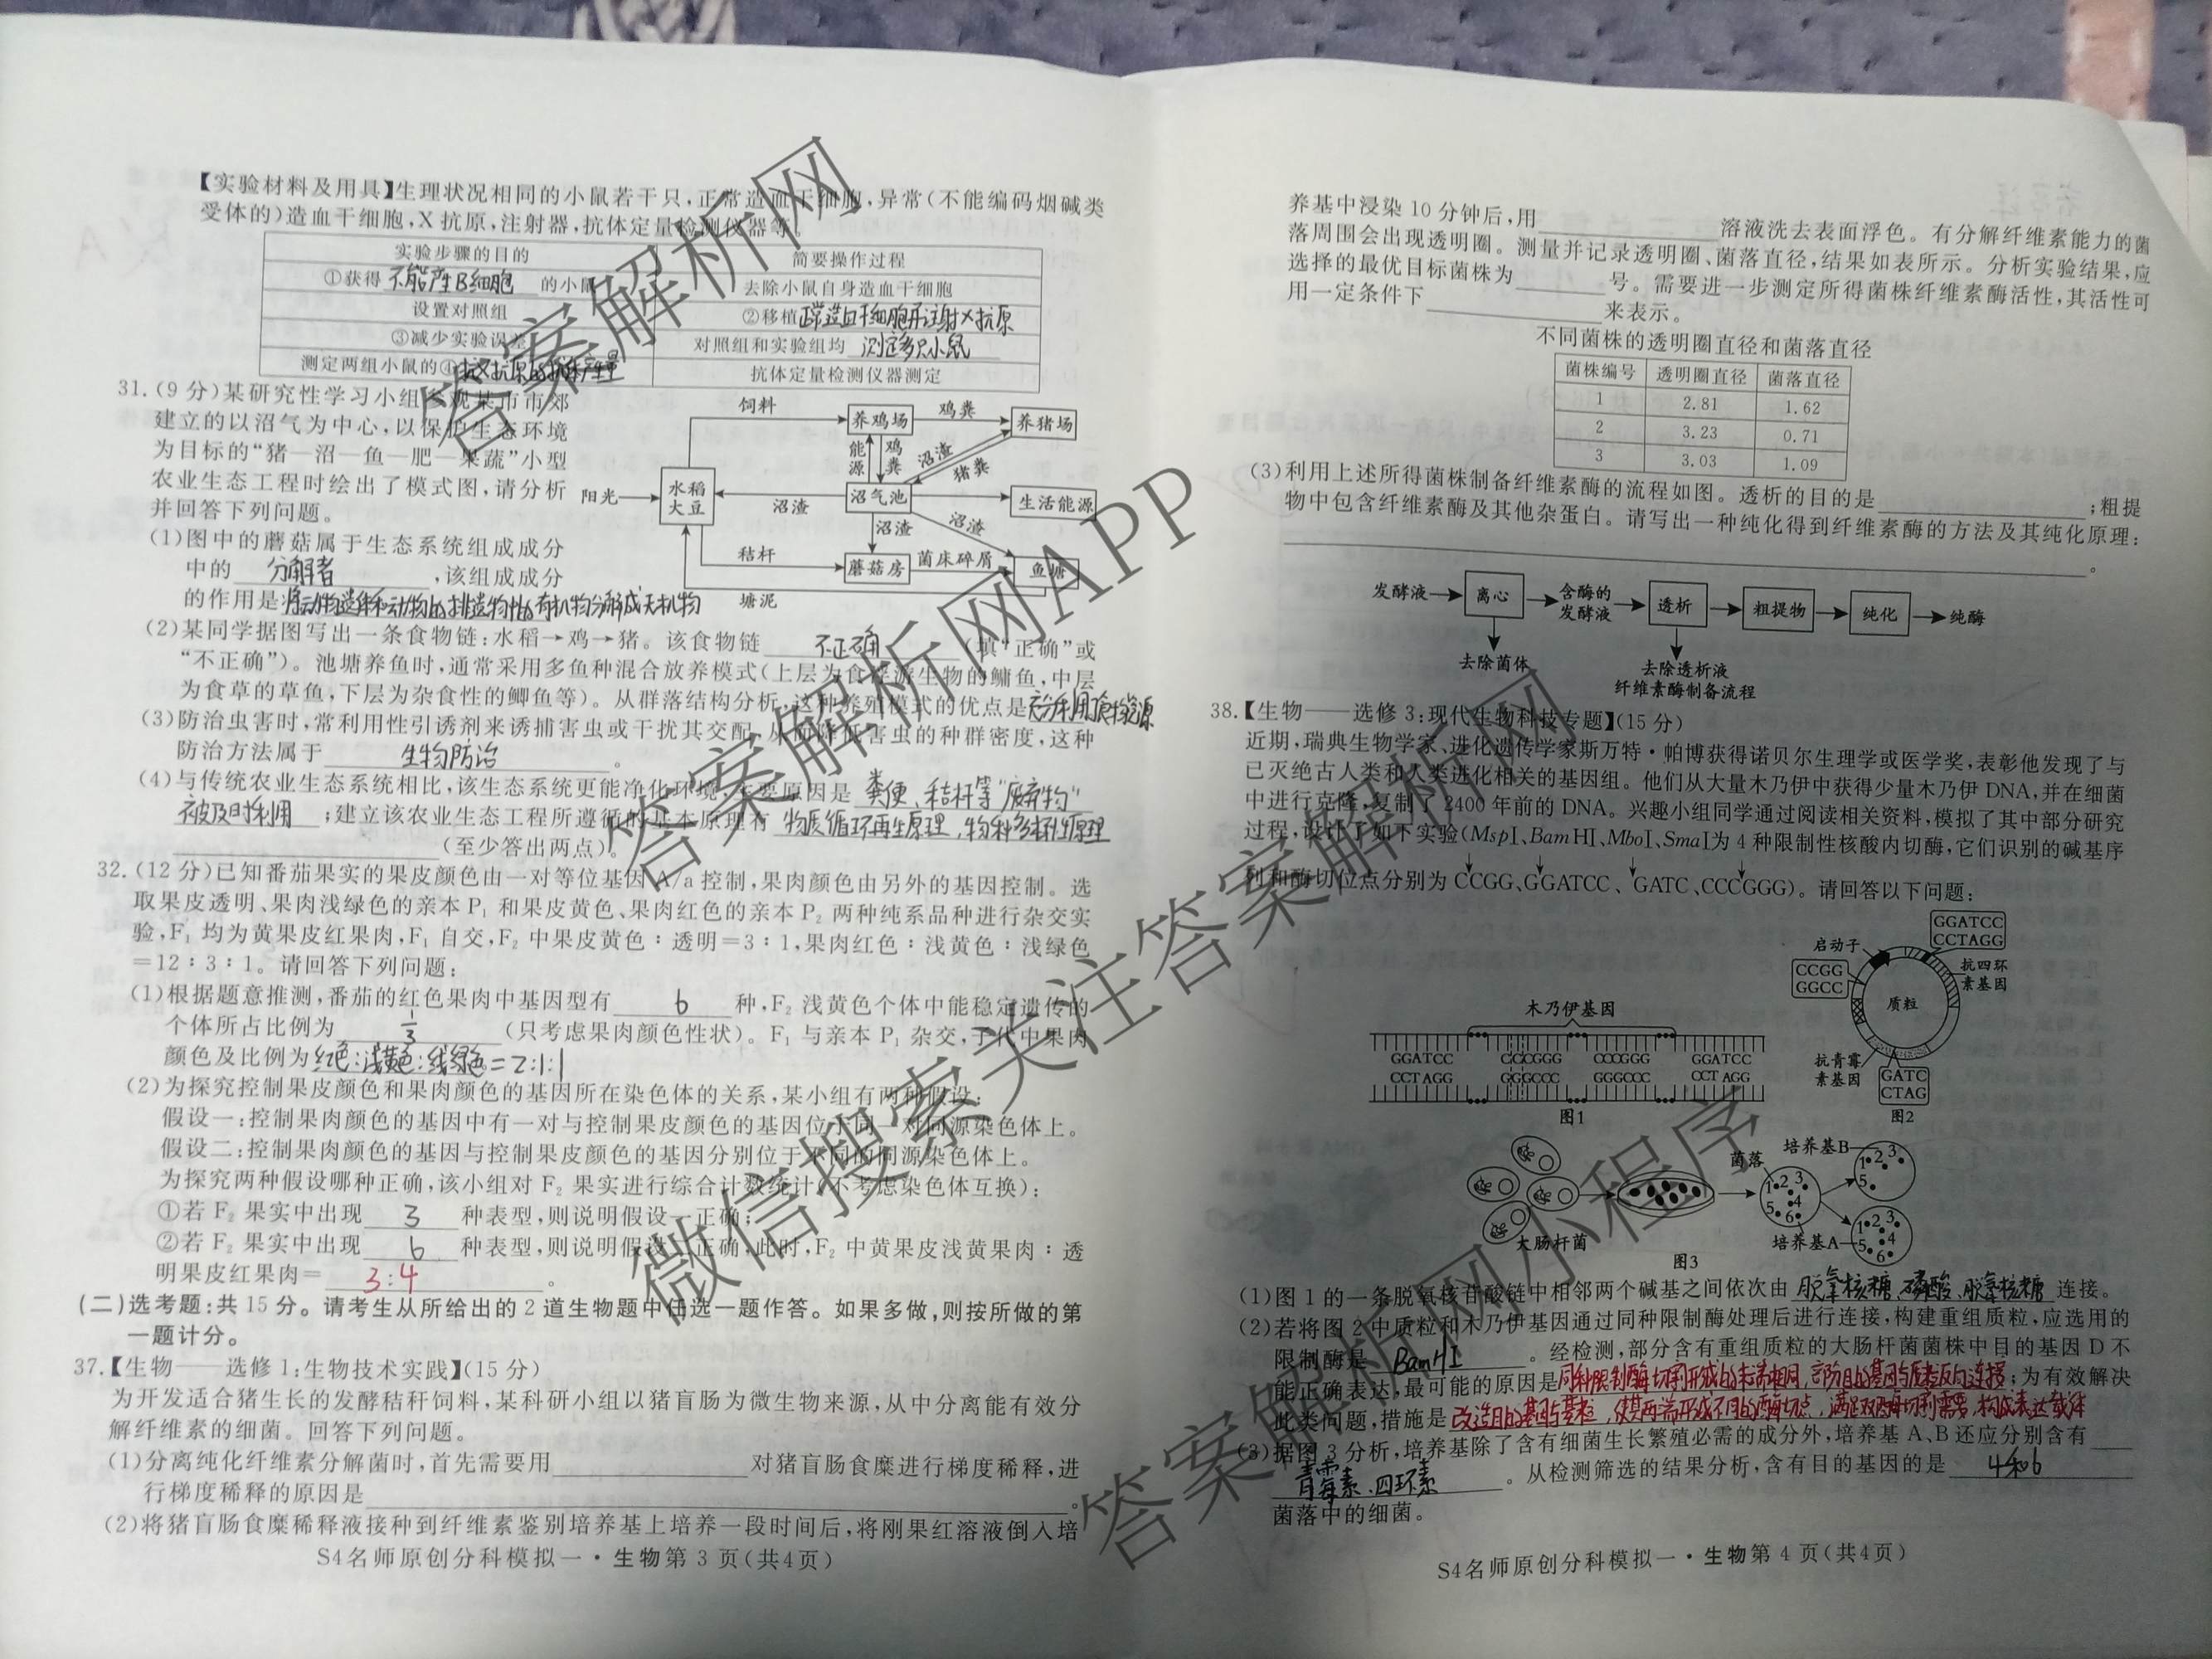 【实验材料及用具】生理状况相同的小鼠若干只,正常造血干细胞,异常(不能编码烟碱类
受体的)造血干细胞,X抗原,注射器,抗体定量检测仪器等。
实验步骤的目的 简要操作过程
①获得 不能产B细胞 的小鼠 去除小鼠自身造血干细胞
设置对照组 ②移植正常造血干细胞并注射X抗原
③减少实验误差 对照组和实验组均 测定多只小鼠
测定两组小鼠的④抗X抗原的抗体产量 抗体定量检测仪器测定
31.(9分)某研究性学习小组参观某市市郊
建立的以沼气为中心,以保护生态环境
为目标的“猪—沼—鱼—肥—果蔬”小型
农业生态工程时绘出了模式图,请分析
并回答下列问题。
饲料 养鸡场 鸡粪 养猪场
能源 鸡粪 沼渣 猪粪
阳光 水稻 大豆 沼渣 沼气池 生活能源
沼渣 沼渣
秸杆 蘑菇房 菌床碎屑 鱼塘
塘泥
(1)图中的蘑菇属于生态系统组成成分
中的 分解者 ,该组成成分
的作用是将动物遗体和动物的排遗物中的有机物分解成无机物
(2)某同学据图写出一条食物链:水稻→鸡→猪。该食物链 不正确 (填“正确”或
“不正确”)。池塘养鱼时,通常采用多鱼种混合放养模式(上层为食浮游生物的鳙鱼,中层
为食草的草鱼,下层为杂食性的鲫鱼等)。从群落结构分析,这种养殖模式的优点是充分利用食物资源
(3)防治虫害时,常利用性引诱剂来诱捕害虫或干扰其交配,从而降低害虫的种群密度,这种
防治方法属于 生物防治 。
(4)与传统农业生态系统相比,该生态系统更能净化环境,主要原因是 粪便、秸杆等“废弃物”
被及时利用 ;建立该农业生态工程所遵循的基本原理有 物质循环再生原理,物种多样性原理
(至少答出两点)。
32.(12分)已知番茄果实的果皮颜色由一对等位基因A/a控制,果肉颜色由另外的基因控制。选
取果皮透明、果肉浅绿色的亲本P₁和果皮黄色、果肉红色的亲本P₂两种纯系品种进行杂交实
验,F₁均为黄果皮红果肉,F₁自交,F₂中果皮黄色:透明=3:1,果肉红色:浅黄色:浅绿色
=12:3:1。请回答下列问题:
(1)根据题意推测,番茄的红色果肉中基因型有 6 种,F₂浅黄色个体中能稳定遗传的
个体所占比例为 1/3 (只考虑果肉颜色性状)。F₁与亲本P₁杂交,子代中果肉
颜色及比例为红色:浅黄色:浅绿色=2:1:1
(2)为探究控制果皮颜色和果肉颜色的基因所在染色体的关系,某小组有两种假设:
假设一:控制果肉颜色的基因中有一对与控制果皮颜色的基因位于同一对同源染色体上。
假设二:控制果肉颜色的基因与控制果皮颜色的基因分别位于不同的同源染色体上。
为探究两种假设哪种正确,该小组对F₂果实进行综合计数统计(不考虑染色体互换):
①若F₂果实中出现 3 种表型,则说明假设一正确;
②若F₂果实中出现 6 种表型,则说明假设二正确,此时,F₂中黄果皮浅黄果肉:透
明果皮红果肉= 3:4 。
(二)选考题:共15分。请考生从所给出的2道生物题中任选一题作答。如果多做,则按所做的第
一题计分。
37.【生物——选修1:生物技术实践】(15分)
为开发适合猪生长的发酵秸秆饲料,某科研小组以猪盲肠为微生物来源,从中分离能有效分
解纤维素的细菌。回答下列问题。
(1)分离纯化纤维素分解菌时,首先需要用 对猪盲肠食糜进行梯度稀释,进
行梯度稀释的原因是 。
(2)将猪盲肠食糜稀释液接种到纤维素鉴别培养基上培养一段时间后,将刚果红溶液倒入培
S4名师原创分科模拟一·生物第3页(共4页)
养基中浸染10分钟后,用 溶液洗去表面浮色。有分解纤维素能力的菌
落周围会出现透明圈。测量并记录透明圈、菌落直径,结果如表所示。分析实验结果,应
选择的最优目标菌株为 号。需要进一步测定所得菌株纤维素酶活性,其活性可
用一定条件下 来表示。
不同菌株的透明圈直径和菌落直径
菌株编号 透明圈直径 菌落直径
1 2.81 1.62
2 3.23 0.71
3 3.03 1.09
(3)利用上述所得菌株制备纤维素酶的流程如图。透析的目的是 ;粗提
物中包含纤维素酶及其他杂蛋白。请写出一种纯化得到纤维素酶的方法及其纯化原理:
。
发酵液 离心 含酶的发酵液 透析 粗提物 纯化 纯酶
去除菌体 去除透析液
纤维素酶制备流程
38.【生物——选修3:现代生物科技专题】(15分)
近期,瑞典生物学家、进化遗传学家斯万特·帕博获得诺贝尔生理学或医学奖,表彰他发现了与
已灭绝古人类和人类进化相关的基因组。他们从大量木乃伊中获得少量木乃伊DNA,并在细菌
中进行克隆,复制了2400年前的DNA。兴趣小组同学通过阅读相关资料,模拟了其中部分研究
过程,设计了如下实验(MspⅠ、BamHⅠ、MboⅠ、SmaⅠ为4种限制性核酸内切酶,它们识别的碱基序
列和酶切位点分别为C↓CGG、G↓GATCC、↓GATC、CCC↓GGG)。请回答以下问题:
木乃伊基因
GGATCC CCCGGG CCCGGG GGATCC
CCTAGG GGGCCC GGGCCC CCTAGG
图1
GGATCC
CCTAGG
启动子 抗四环素基因
CCGG
GGCC
质粒
抗青霉素基因
GATC
CTAG
图2
大肠杆菌 菌落 培养基B 1 2 3 5
1 2 3 4 5 6
培养基A 1 2 3 4 5 6
图3
(1)图1的一条脱氧核苷酸链中相邻两个碱基之间依次由 脱氧核糖、磷酸、脱氧核糖 连接。
(2)若将图2中质粒和木乃伊基因通过同种限制酶处理后进行连接,构建重组质粒,应选用的
限制酶是 BamHI 。经检测,部分含有重组质粒的大肠杆菌菌株中目的基因D不
能正确表达,最可能的原因是同种限制酶切割形成的末端相同,部分目的基因与质粒反向连接;为有效解决
此类问题,措施是 改造目的基因与质粒,使其两端形成不同的酶切点,满足双酶切割需要,构成表达载体
(3)据图3分析,培养基除了含有细菌生长繁殖必需的成分外,培养基A、B还应分别含有
青霉素、四环素 。从检测筛选的结果分析,含有目的基因的是 4和6
菌落中的细菌。
S4名师原创分科模拟一·生物第4页(共4页)
答案解析网
答案解析网APP
微信搜索关注答案解析网
答案解析网小程序